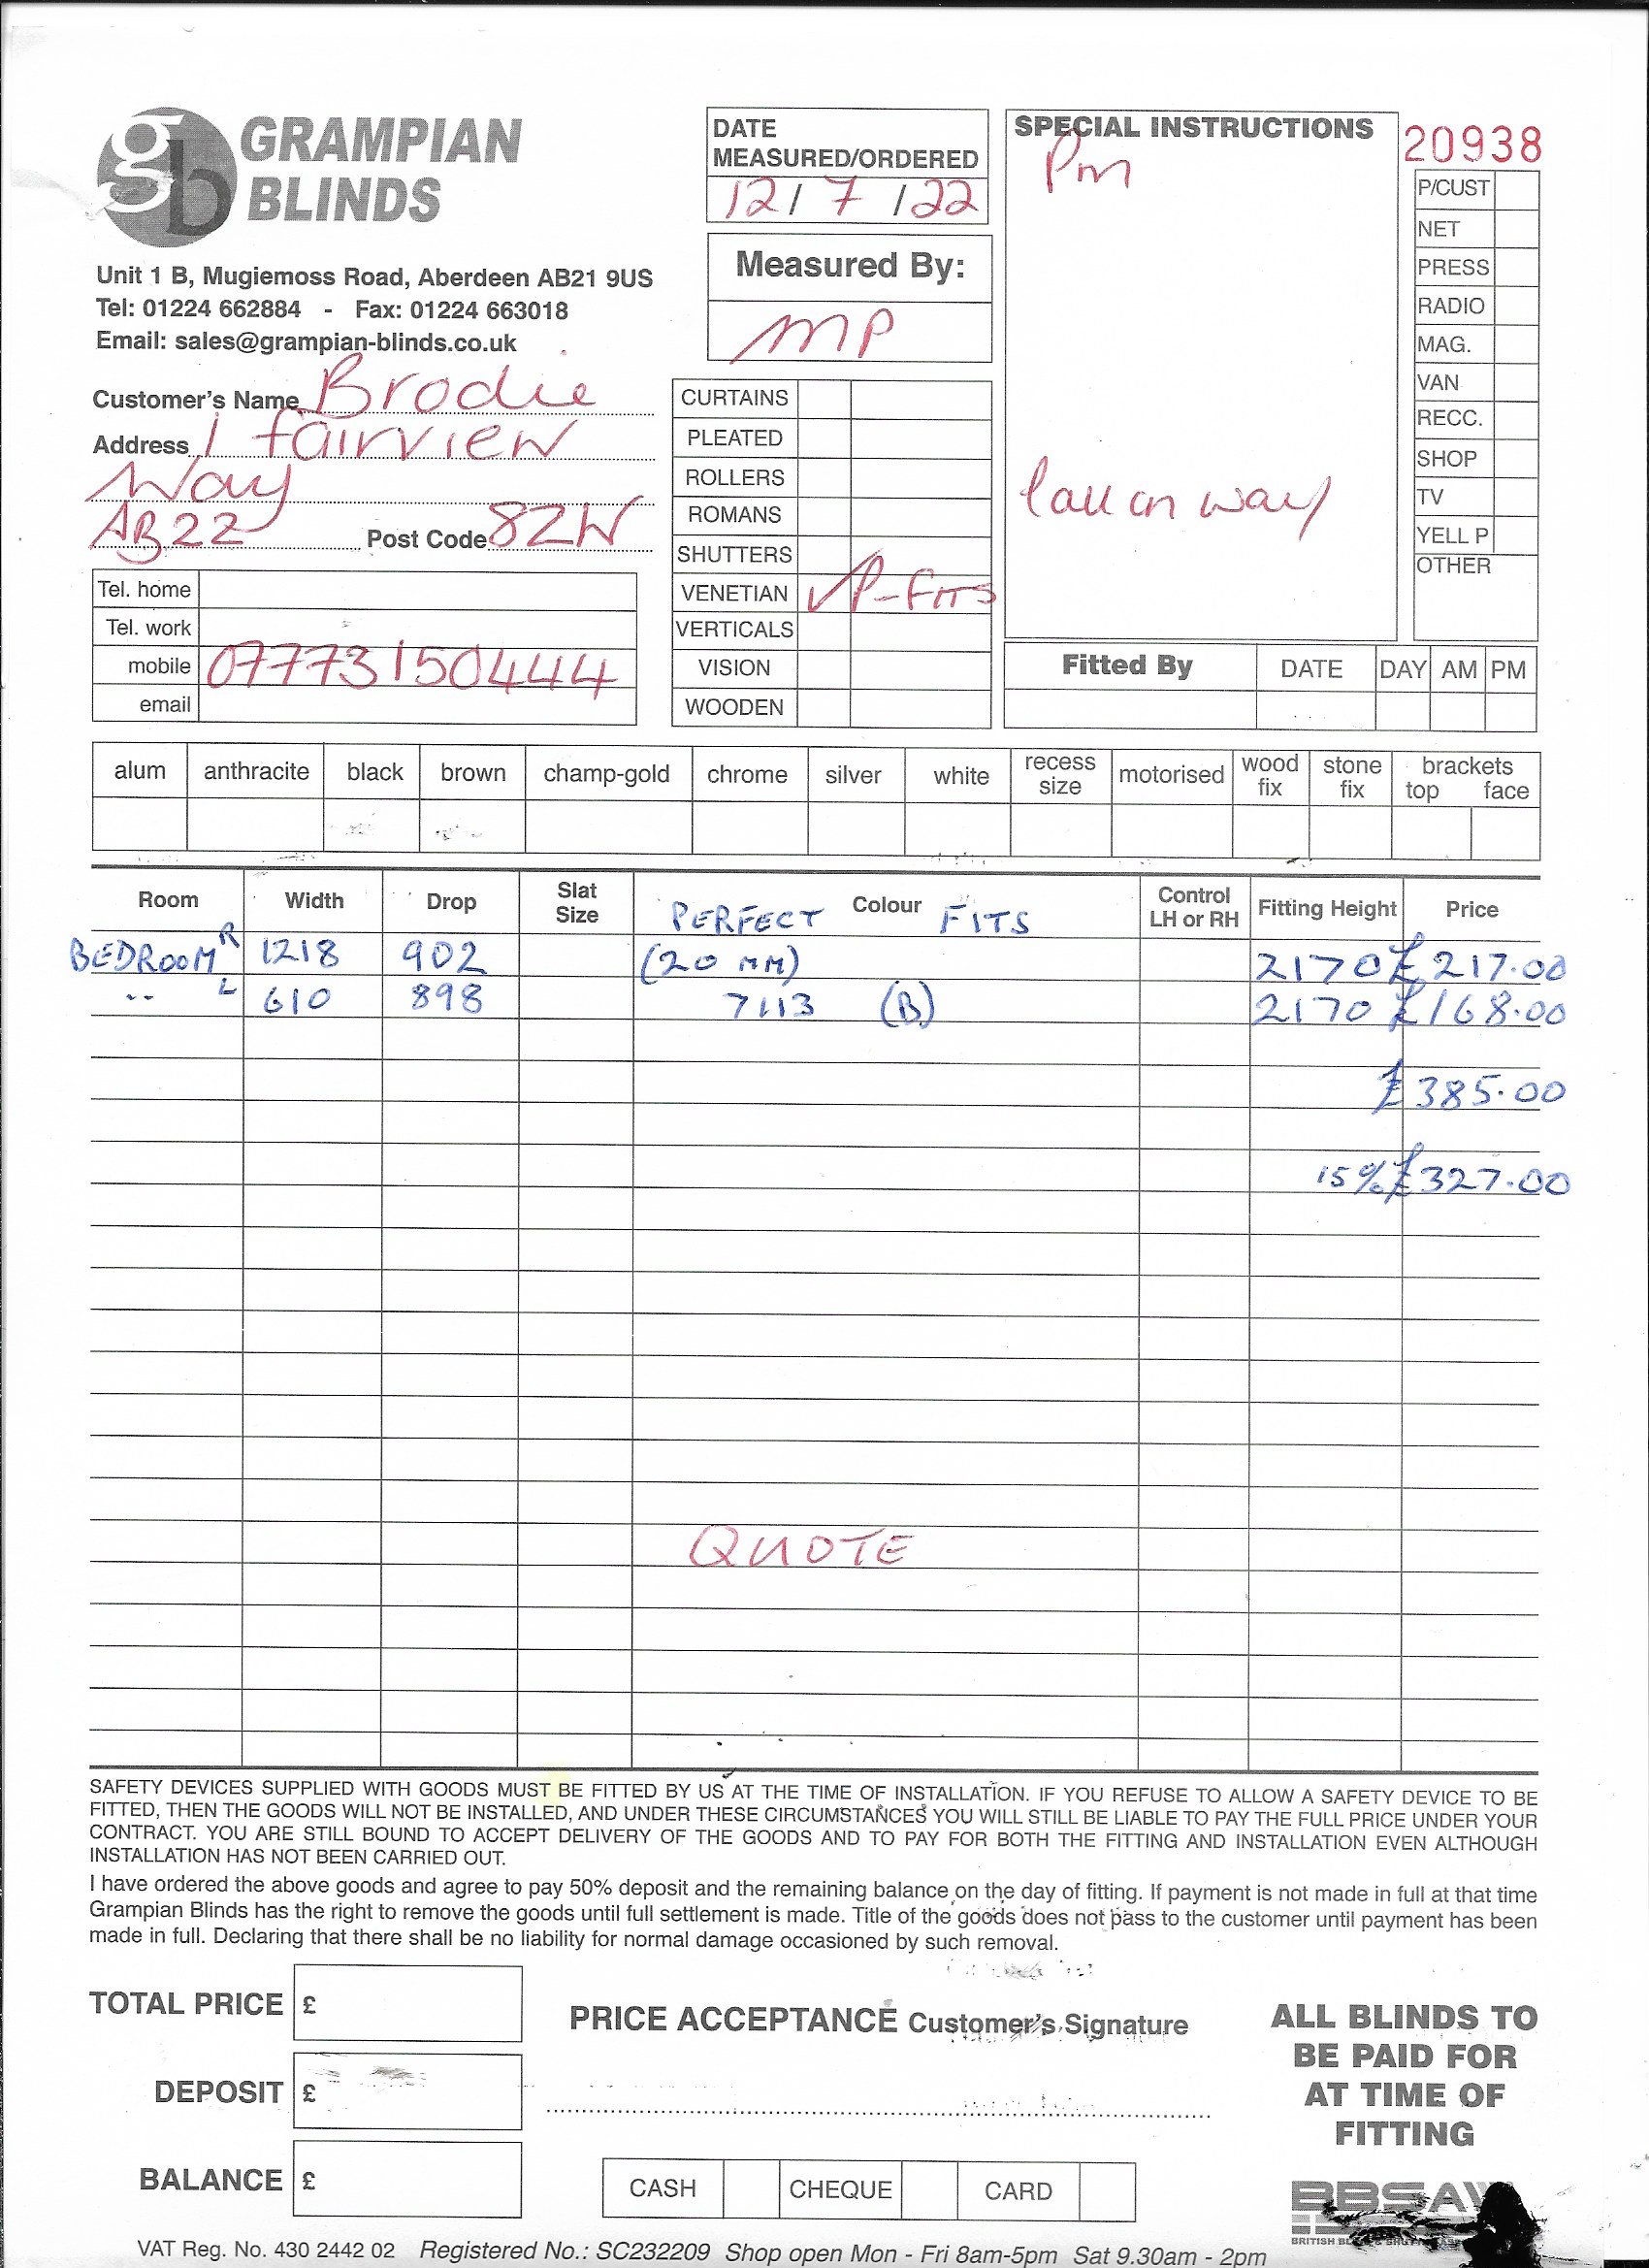 GRAMPIAN
BLINDS
Unit 1 B, Mugiemoss Road, Aberdeen AB21 9US
Tel: 01224 662884 - Fax: 01224 663018
Email: sales@grampian-blinds.co.uk
Customer's Name Brodie
Address 1 fairview
Way
AB22 Post Code 8ZW
Tel. home
Tel. work
mobile 07773150444
email
DATE
MEASURED/ORDERED
12/7/22
Measured By:
MP
CURTAINS
PLEATED
ROLLERS
ROMANS
SHUTTERS
VENETIAN ✓ P-FITS
VERTICALS
VISION
WOODEN
SPECIAL INSTRUCTIONS
Pm
Call on way
20938
P/CUST
NET
PRESS
RADIO
MAG.
VAN
RECC.
SHOP
TV
YELL P
OTHER
Fitted By DATE DAY AM PM
alum anthracite black brown champ-gold chrome silver white recess size motorised wood fix stone fix brackets top face
Room Width Drop Slat Size Colour Control LH or RH Fitting Height Price
PERFECT FITS
BEDROOM R 1218 902 (20 MM) 2170 £217.00
" L 610 898 7113 (B) 2170 £168.00
£385.00
15% £327.00
QUOTE
SAFETY DEVICES SUPPLIED WITH GOODS MUST BE FITTED BY US AT THE TIME OF INSTALLATION. IF YOU REFUSE TO ALLOW A SAFETY DEVICE TO BE
FITTED, THEN THE GOODS WILL NOT BE INSTALLED, AND UNDER THESE CIRCUMSTANCES YOU WILL STILL BE LIABLE TO PAY THE FULL PRICE UNDER YOUR
CONTRACT. YOU ARE STILL BOUND TO ACCEPT DELIVERY OF THE GOODS AND TO PAY FOR BOTH THE FITTING AND INSTALLATION EVEN ALTHOUGH
INSTALLATION HAS NOT BEEN CARRIED OUT.
I have ordered the above goods and agree to pay 50% deposit and the remaining balance on the day of fitting. If payment is not made in full at that time
Grampian Blinds has the right to remove the goods until full settlement is made. Title of the goods does not pass to the customer until payment has been
made in full. Declaring that there shall be no liability for normal damage occasioned by such removal.
TOTAL PRICE £
DEPOSIT £
BALANCE £
PRICE ACCEPTANCE Customer's Signature
CASH CHEQUE CARD
ALL BLINDS TO
BE PAID FOR
AT TIME OF
FITTING
BBSA
BRITISH
VAT Reg. No. 430 2442 02 Registered No.: SC232209 Shop open Mon - Fri 8am-5pm Sat 9.30am - 2pm